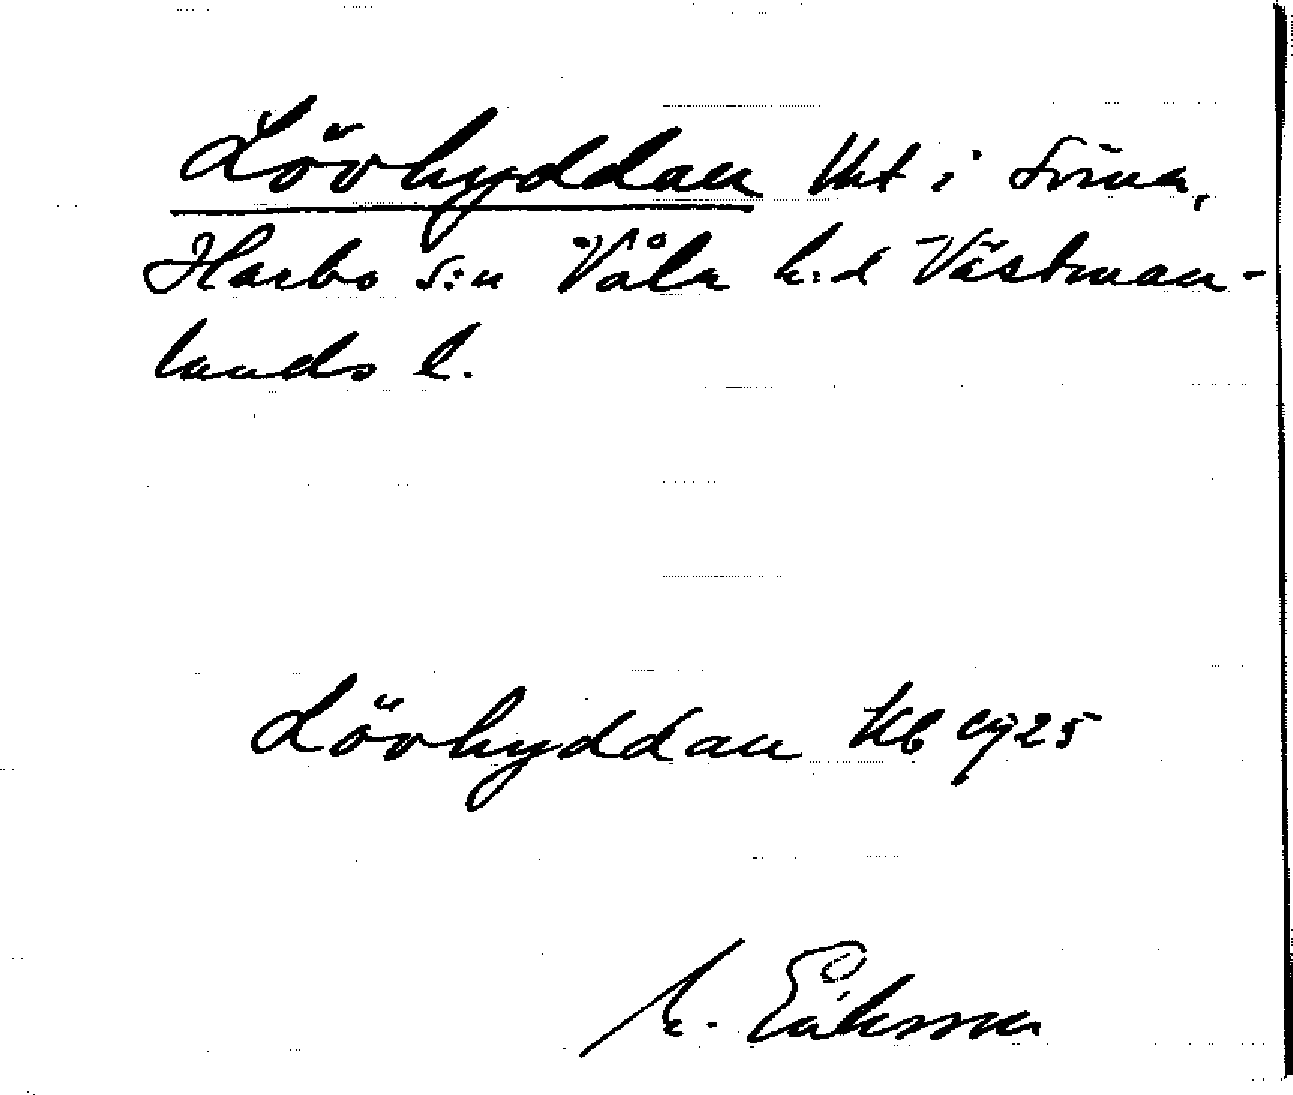 Lövhyddan lht i Sörna,
Harbo s:n Våla h:d Västman-
lands l.
Lövhyddan kb 1925
M. Eriksson